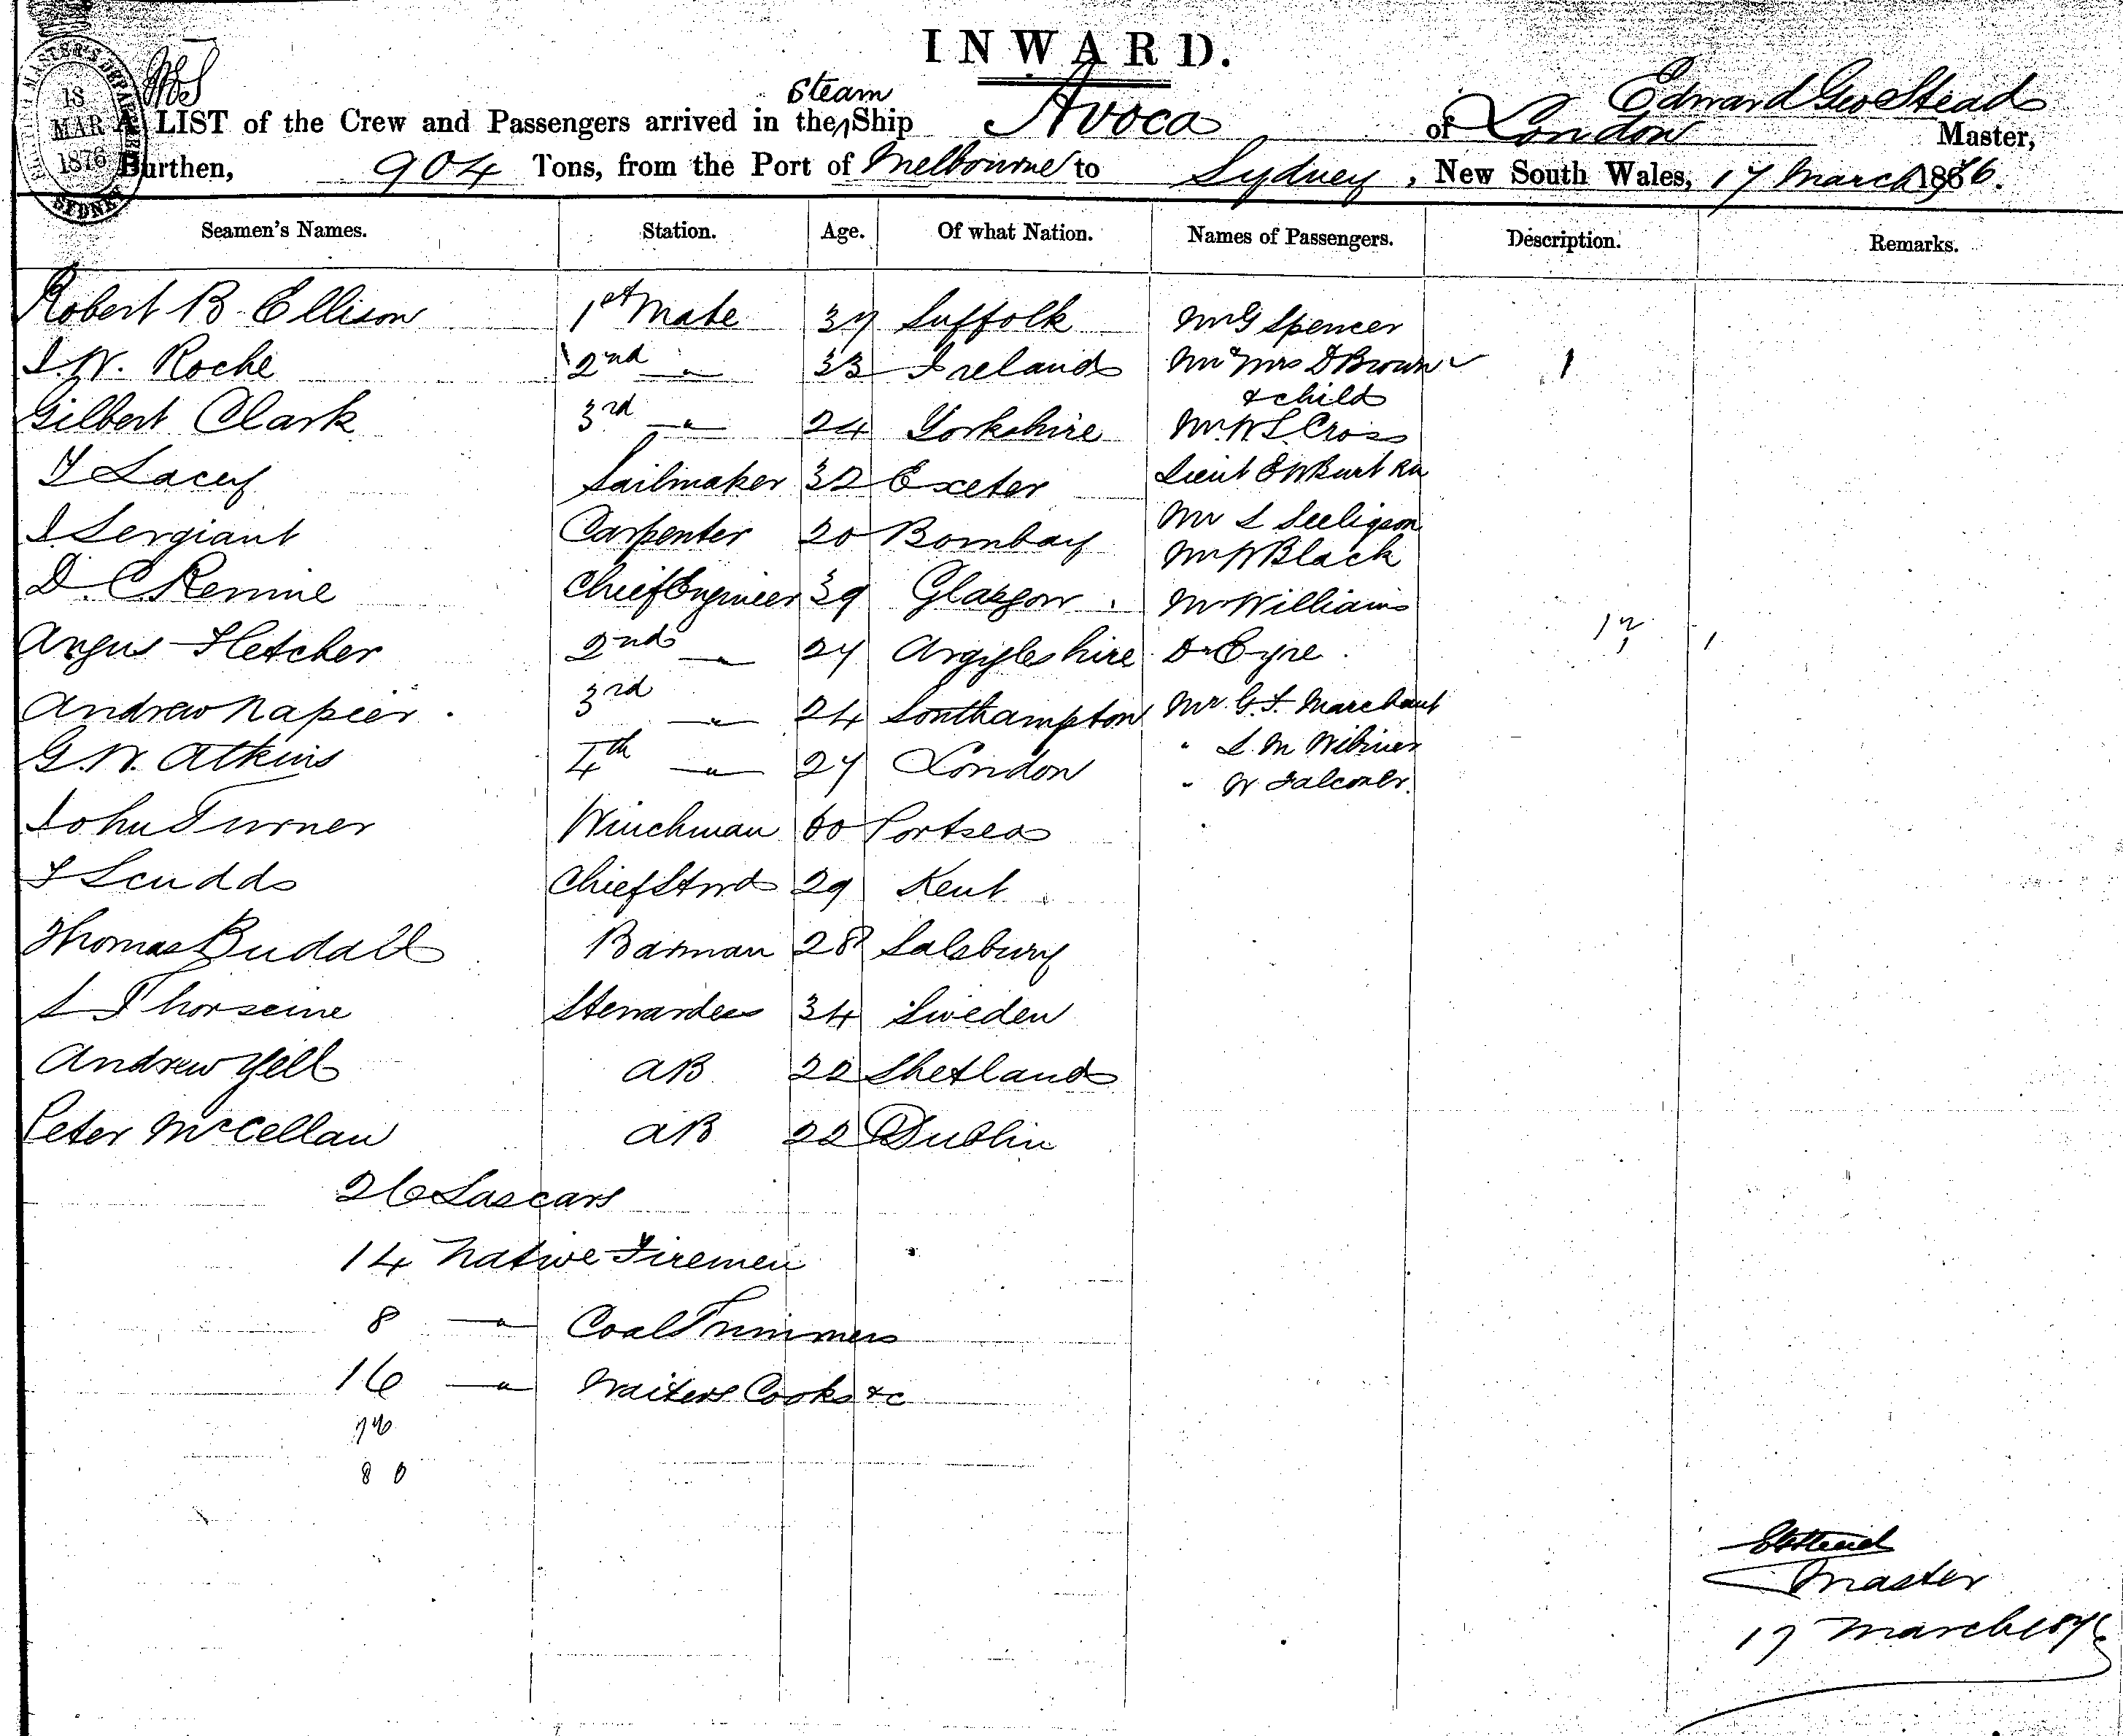 INWARD.
18
MAR
1876
SYDNEY
Steam
Edward Geo Stead
A LIST of the Crew and Passengers arrived in the Ship Avoca of London Master,
Burthen, 904 Tons, from the Port of Melbourne to Sydney, New South Wales, 17 March 1876.
Seamen's Names. Station. Age. Of what Nation. Names of Passengers. Description. Remarks.
Robert B. Ellison 1st Mate 37 Suffolk Mr G Spencer
J.W. Roche 2nd " 33 Ireland Mr & Mrs D Brown 1
& child
Gilbert Clark 3rd " 24 Yorkshire Mr. W S. Cross
T Lacey Sailmaker 32 Exeter Lieut E W Burt RN
J Sergiant Carpenter 20 Bombay Mr L Seeligson
Mr W Black
D. C Rennie Chief Engineer 39 Glasgow Mr Williams
12 1
Angus Fletcher 2nd " 27 Argyleshire Dr Eyre
Andrew Napier 3rd " 24 Southampton Mr G. F. Marchant
" L. M
G.W. Atkins 4th " 27 London
" W Falconer.
John Turner Winchman 60 Portsea
F Scudds Chief Stwd 29 Kent
Thomas Budall Barman 28 Salsbury
S Stewardess 34 Sweden
Andrew Yell AB 22 Shetland
Peter McCellan AB 22 Dublin
26 Lascars
14 Native Firemen
8 " Coal Trimmers
16 " Waiters Cooks &c
80
Master
17 March 1876